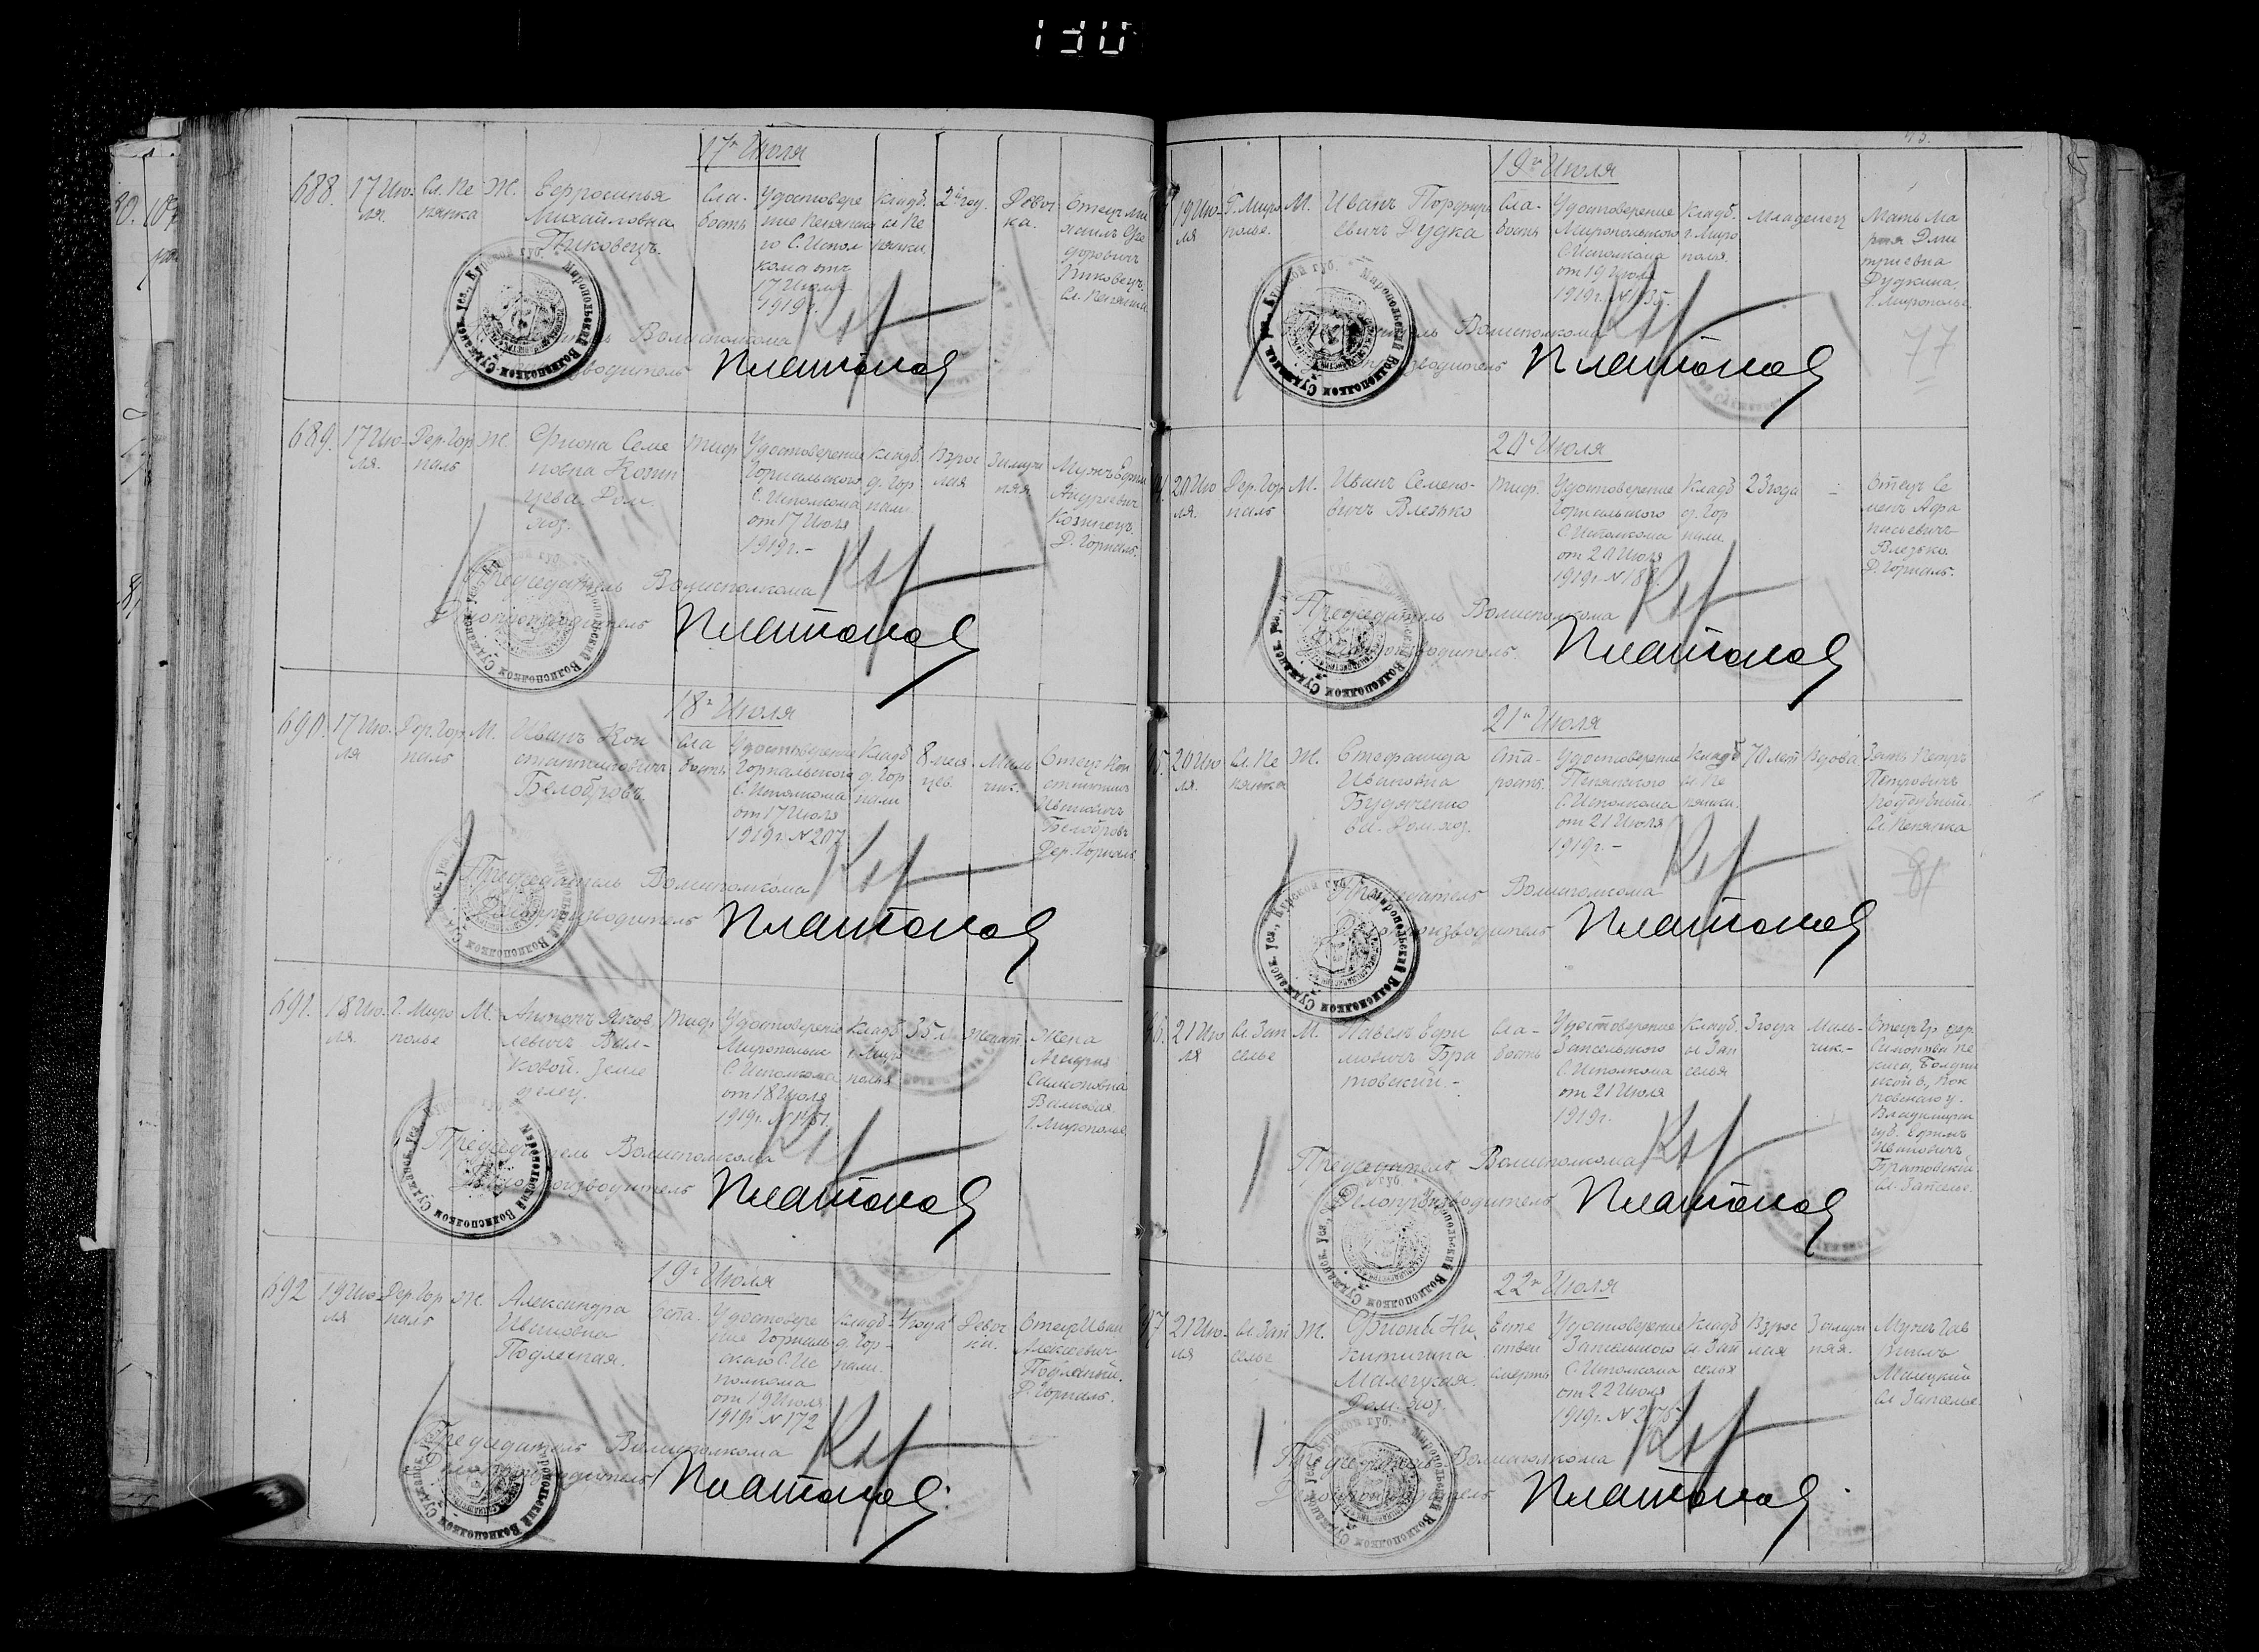 130
17го Июля
688. 17 Ию-
ля.
Сл. Пе
нянка
Ж.
Евросинья
Михайловна
Пиковецъ.
Сла-
бость
Удостовере
ние Пенянска
го С. Испол
кома отъ
17 Июля
1919 г.
Кладб.
сл. Пе
нянки.
2й год.
Девоч
ка.
Отецъ Ми
хаилъ Фе
доровичъ
Пиковецъ.
Сл. Пенянка
Волисполкома
Платонов
689. 17 Ию-
ля.
Дер. Гор
наль
Ж.
Фиона Семе
новна Козин
цева. Дом.
хоз.
Тиф
Удостоверение
Горнальского
С. Исполкома
от 17 Июля
1919 г. -
Кладб.
д. Гор
нали.
Взрос
лая
Замуж
няя
Мужъ Ефим
Андреевич
Козинецъ.
Д. Горналь.
Председатель Волисполкома
Делопроизводитель Платонов
18го Июля
690. 17 Ию-
ля
Дер. Гор
наль
М.
Иванъ Кон
стантиновичъ
Белобровъ.
Сла
бость
Удостоверение
Горнальского
С. Исполкома
от 17 Июля
1919 г. № 207
Кладб
д. Гор
нали
8 меся
цев.
Маль
чик.
Отец Кон
стантинъ
Ивановичъ
Белобровъ
Дер. Горналь
Председатель Волисполкома
Делопроизводитель Платонов
691. 18 Ию-
ля.
Г. Миро
полье
М.
Антонъ Яков
левичъ Вал-
ковой. Земле
делец.
Тиф
Удостоверение
Миропольск
С. Исполкома
от 18 Июля
1919 г.
Кладб
г. Миро
полья
35 л.
Женат.
Жена
Самсоновна
Валковая.
Г. Мирополье
Председатель Волисполкома
Делопроизводитель Платонов
19го Июля
692 19 Ию-
ля
Дер. Гор
наль
Ж.
Александра
Ивановна
Подлесная.
Оспа.
Удостовере
ние Горналь
ского С. Ис
полкома
от 19 Июля
1919 г № 172
Кладб-
д. Гор-
нали.
4 года
Девоч
ка.
Отец Иван
Алексеевич
Подлесный.
Д. Горналь.
Председатель Волисполкома
Делопроизводитель Платонов
19го Июля
19 Ию-
ля
Г. Миро
полье.
М.
Иванъ Порфирь
евичъ Дудка
Сла-
бость
Удостоверение
Миропольского
С. Исполкома
от 19 Июля
1919 г.
Кладб.
г. Миро
полья.
Младенец
Мать Ма
рия Дми
триевна
Дудкина.
г. Мирополье
77
Волисполкома
Платонов
20го Июля
20 Ию
ля.
Дер. Гор
наль
М.
Иванъ Семено-
вичъ Влезько
Тиф.
Удостоверение
Горнальского
С. Исполкома
от 20 Июля
1919 г.
Кладб
д. Гор
нали.
23 года
-
Отецъ Се
менъ Афа
насьевичъ
Влезько.
Д. Горналь.
Председатель Волисполкома
Делопроизводитель Платонов
21го Июля
20 Ию
ля.
Сл. Пе
нянка
Ж.
Стефанида
Ивановна
Дом. хоз.
Ста-
рость.
Удостоверение
Пенянского
С. Исполкома
от 21 Июля
1919 г. -
Кладб
сл. Пе
нянки.
70 лет
Вдова
Зять Петръ
Петровичъ
Сл. Пенянка
81
Председатель Волисполкома
Делопроизводитель Платонов
21 Ию
ля
Сл. Зап
селье
М.
Павелъ Ефи
мовичъ Бра
товский. -
Сла-
бость
Удостоверение
Запсельского
С. Исполкома
от 21 Июля
1919 г.
Кладб.
сл. Зап
селья
3 года
Маль-
чик. -
Отецъ гр. дер.
Пок
ровского у.
Владимирск
губ. Ефимъ
Ивановичъ
Братовский
Сл. Запселье.
Председатель Волисполкома
Делопроизводитель Платонов
22го Июля
21 Ию-
ля
Сл. Зап
селье
Ж.
Фиона Ни
китична
Малецкая.
Дом. хоз.
Есте
ствен
смерть
Удостоверение
Запсельского
С. Исполкома
от 22 Июля
1919 г.
Кладб
сл. Зап
селья
Взрос
лая
Замуж
няя.
Мужъ Гав
риилъ
Малецкий
Сл. Запселье.
Председатель Волисполкома
Делопроизводитель Платонов